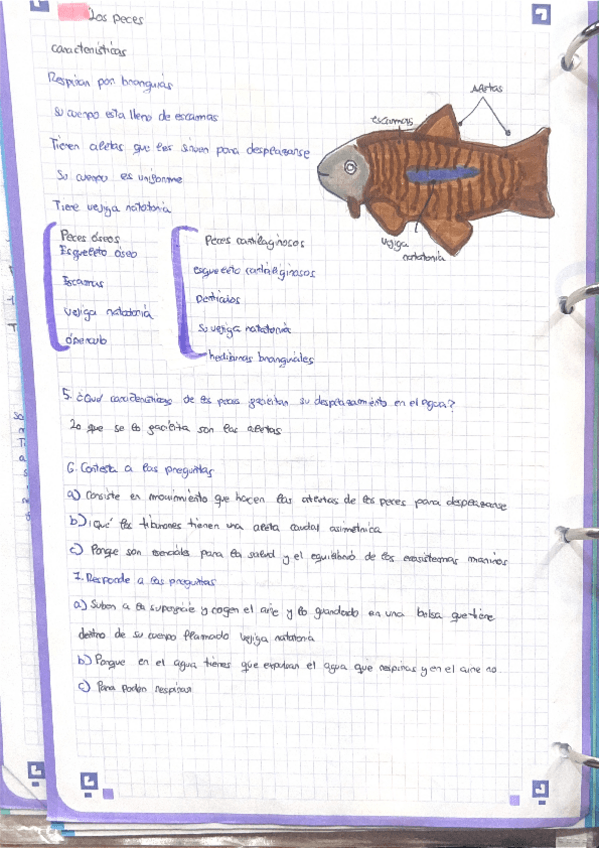 Los peces
características
Respiran por branquias
Su cuerpo esta lleno de escamas
Tienen aletas que les sirven para desplazarse
Su cuerpo es uniforme
Tiene vejiga natatoria
Aletas
escamas
vejiga
natatoria
Peces óseos
Esqueleto óseo
Escamas
vejiga natatoria
óperculo
Peces cartilaginosos
esqueleto cartilaginosos
Denticulos
Su vejiga natatoria
hendiduras branquiales
5. ¿Qué características de los peces facilitan su desplazamiento en el agua?
Lo que se lo facilita son las aletas
6. Contesta a las preguntas
a) Consiste en movimiento que hacen las aletas de los peces para desplazarse
b) ¡Qué los tiburones tienen una aleta caudal asimetrica
c) Porque son esenciales para la salud y el equilibrio de los ecosistemas marinos
7. Responde a las preguntas
a) Suben a la superficie y cogen el aire y lo guardado en una bolsa que tiene
dentro de su cuerpo llamado vejiga natatoria
b) Porque en el agua tienes que expulsar el agua que respiras y en el aire no
c) Para poder respirar